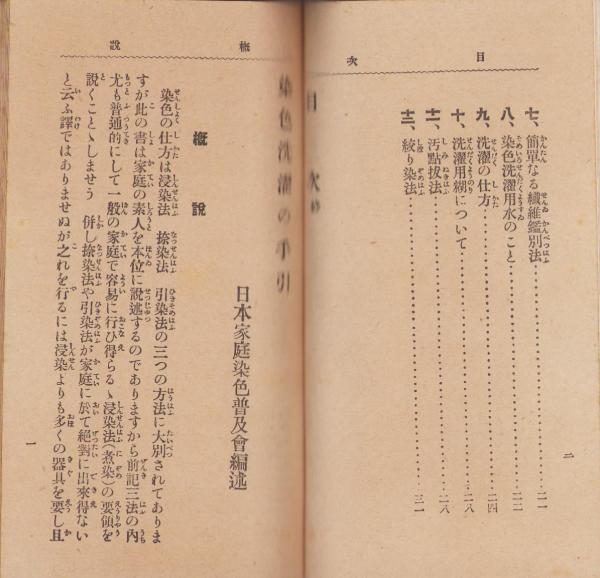 目次
七、簡單なる纖維鑑別法…………二一
八、染色洗濯用水のこと…………二二
九、洗濯の仕方…………二四
十、洗濯用糊について…………二八
十一、汚點拔法…………二八
十二、絞り染法…………三一
二
概說
染色洗濯の手引
日本家庭染色普及會編述
概說
染色の仕方は浸染法　捺染法　引染法の三つの方法に大別されてありま
すが此の書は家庭の素人を本位に說述するのでありますから前記三法の內
尤も普通的にして一般の家庭で容易に行ひ得らるゝ浸染法(煮染)の要領を
說くことゝしませう　併し捺染法や引染法が家庭に於て絕對に出來得ない
と云ふ譯ではありませぬが之れを行るには浸染よりも多くの器具を要し且
一